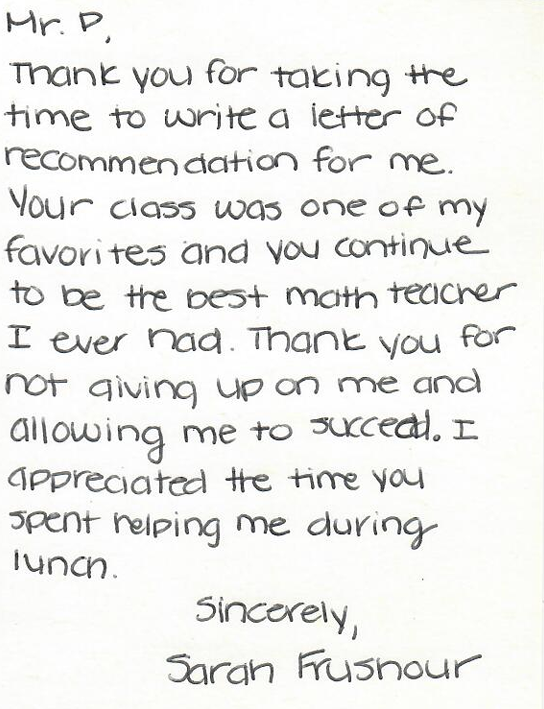 Mr. P,
Thank you for taking the
time to write a letter of
recommendation for me.
Your class was one of my
favorites and you continue
to be the best math teacher
I ever had. Thank you for
not giving up on me and
allowing me to succeed. I
appreciated the time you
spent helping me during
lunch.
Sincerely,
Sarah Frushour